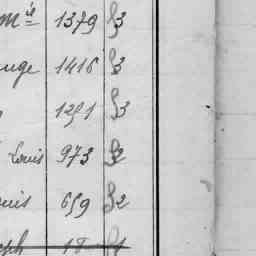 Mie 1379 §3
ange 1416 §3
1251 §3
Louis 973 §2
ouis 659 §2
eph 18 §1